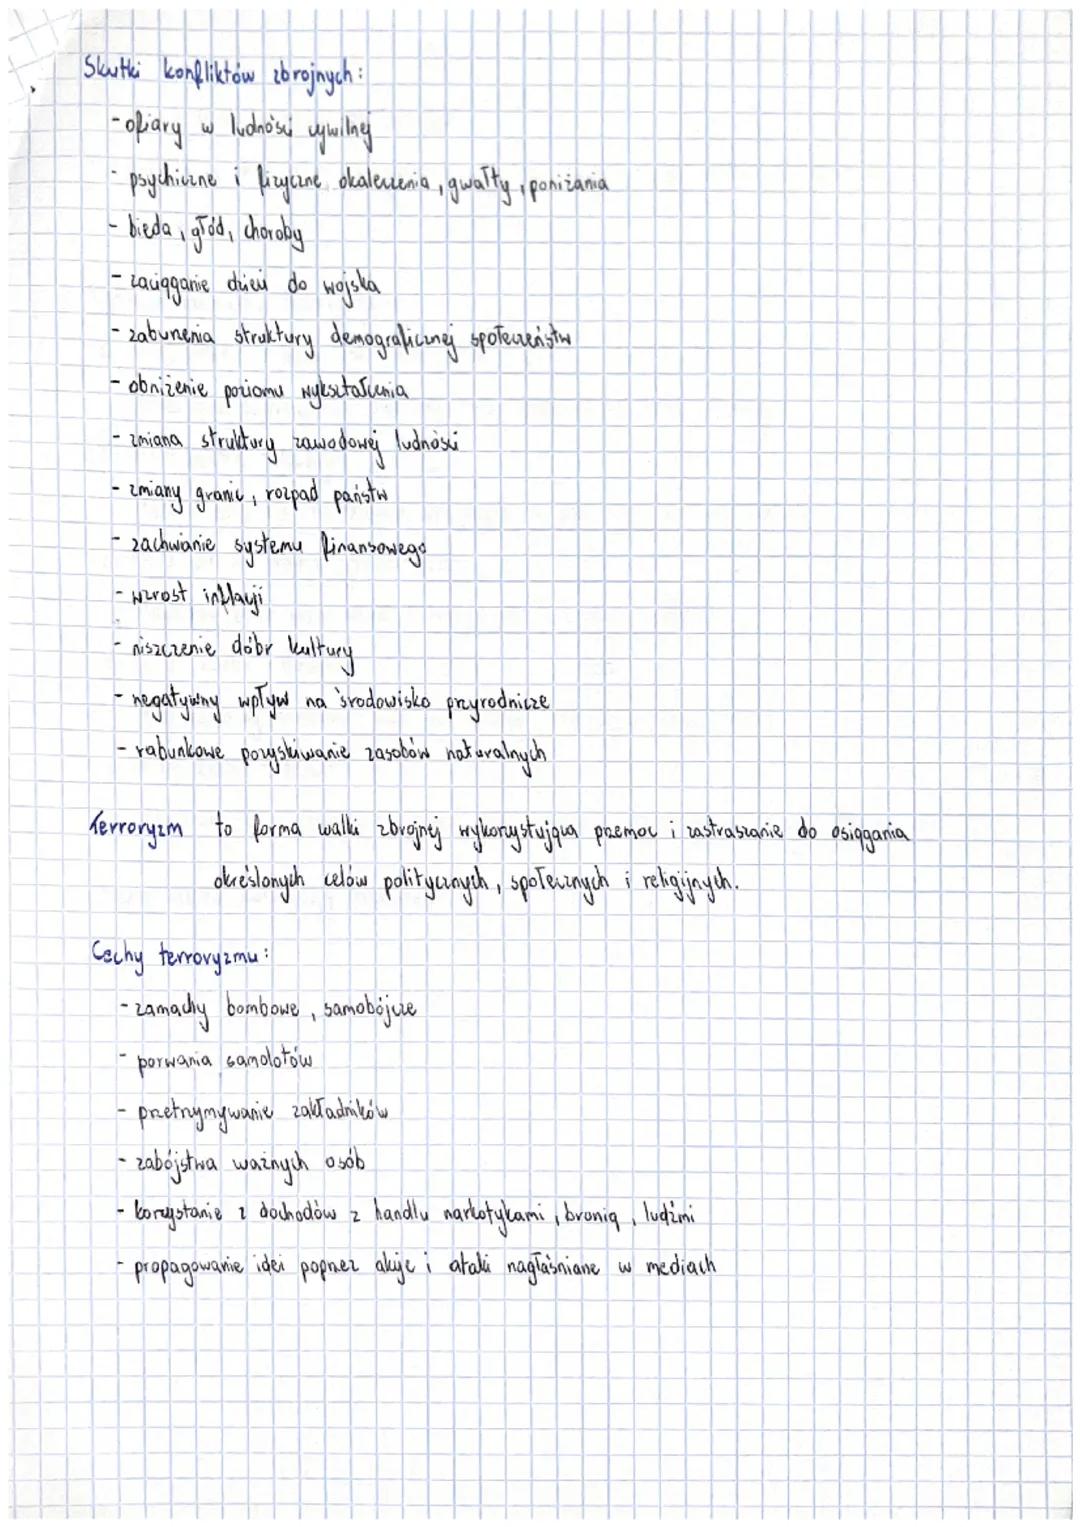 Skutki konfliktów zbrojnych:
- ofiary w ludności cywilnej
- psychiczne i fizyczne okaleczenia, gwałty, poniżania
- bieda, głód, choroby
- zaciąganie dzieci do wojska
- zaburzenia struktury demograficznej społeczeństw
- obniżenie poziomu wykształcenia
- zmiana struktury zawodowej ludności
- zmiany granic, rozpad państw
- zachwianie systemu finansowego
- wzrost inflacji
- niszczenie dóbr kultury
- negatywny wpływ na środowisko przyrodnicze
- rabunkowe pozyskiwanie zasobów naturalnych
Terroryzm to forma walki zbrojnej wykorzystująca przemoc i zastraszanie do osiągania
określonych celów politycznych, społecznych i religijnych.
Cechy terroryzmu:
- zamachy bombowe, samobójcze
- porwania samolotów
- przetrzymywanie zakładników
- zabójstwa ważnych osób
- korzystanie z dochodów z handlu narkotykami, bronią, ludźmi
- propagowanie idei poprzez akcje i ataki nagłaśniane w mediach